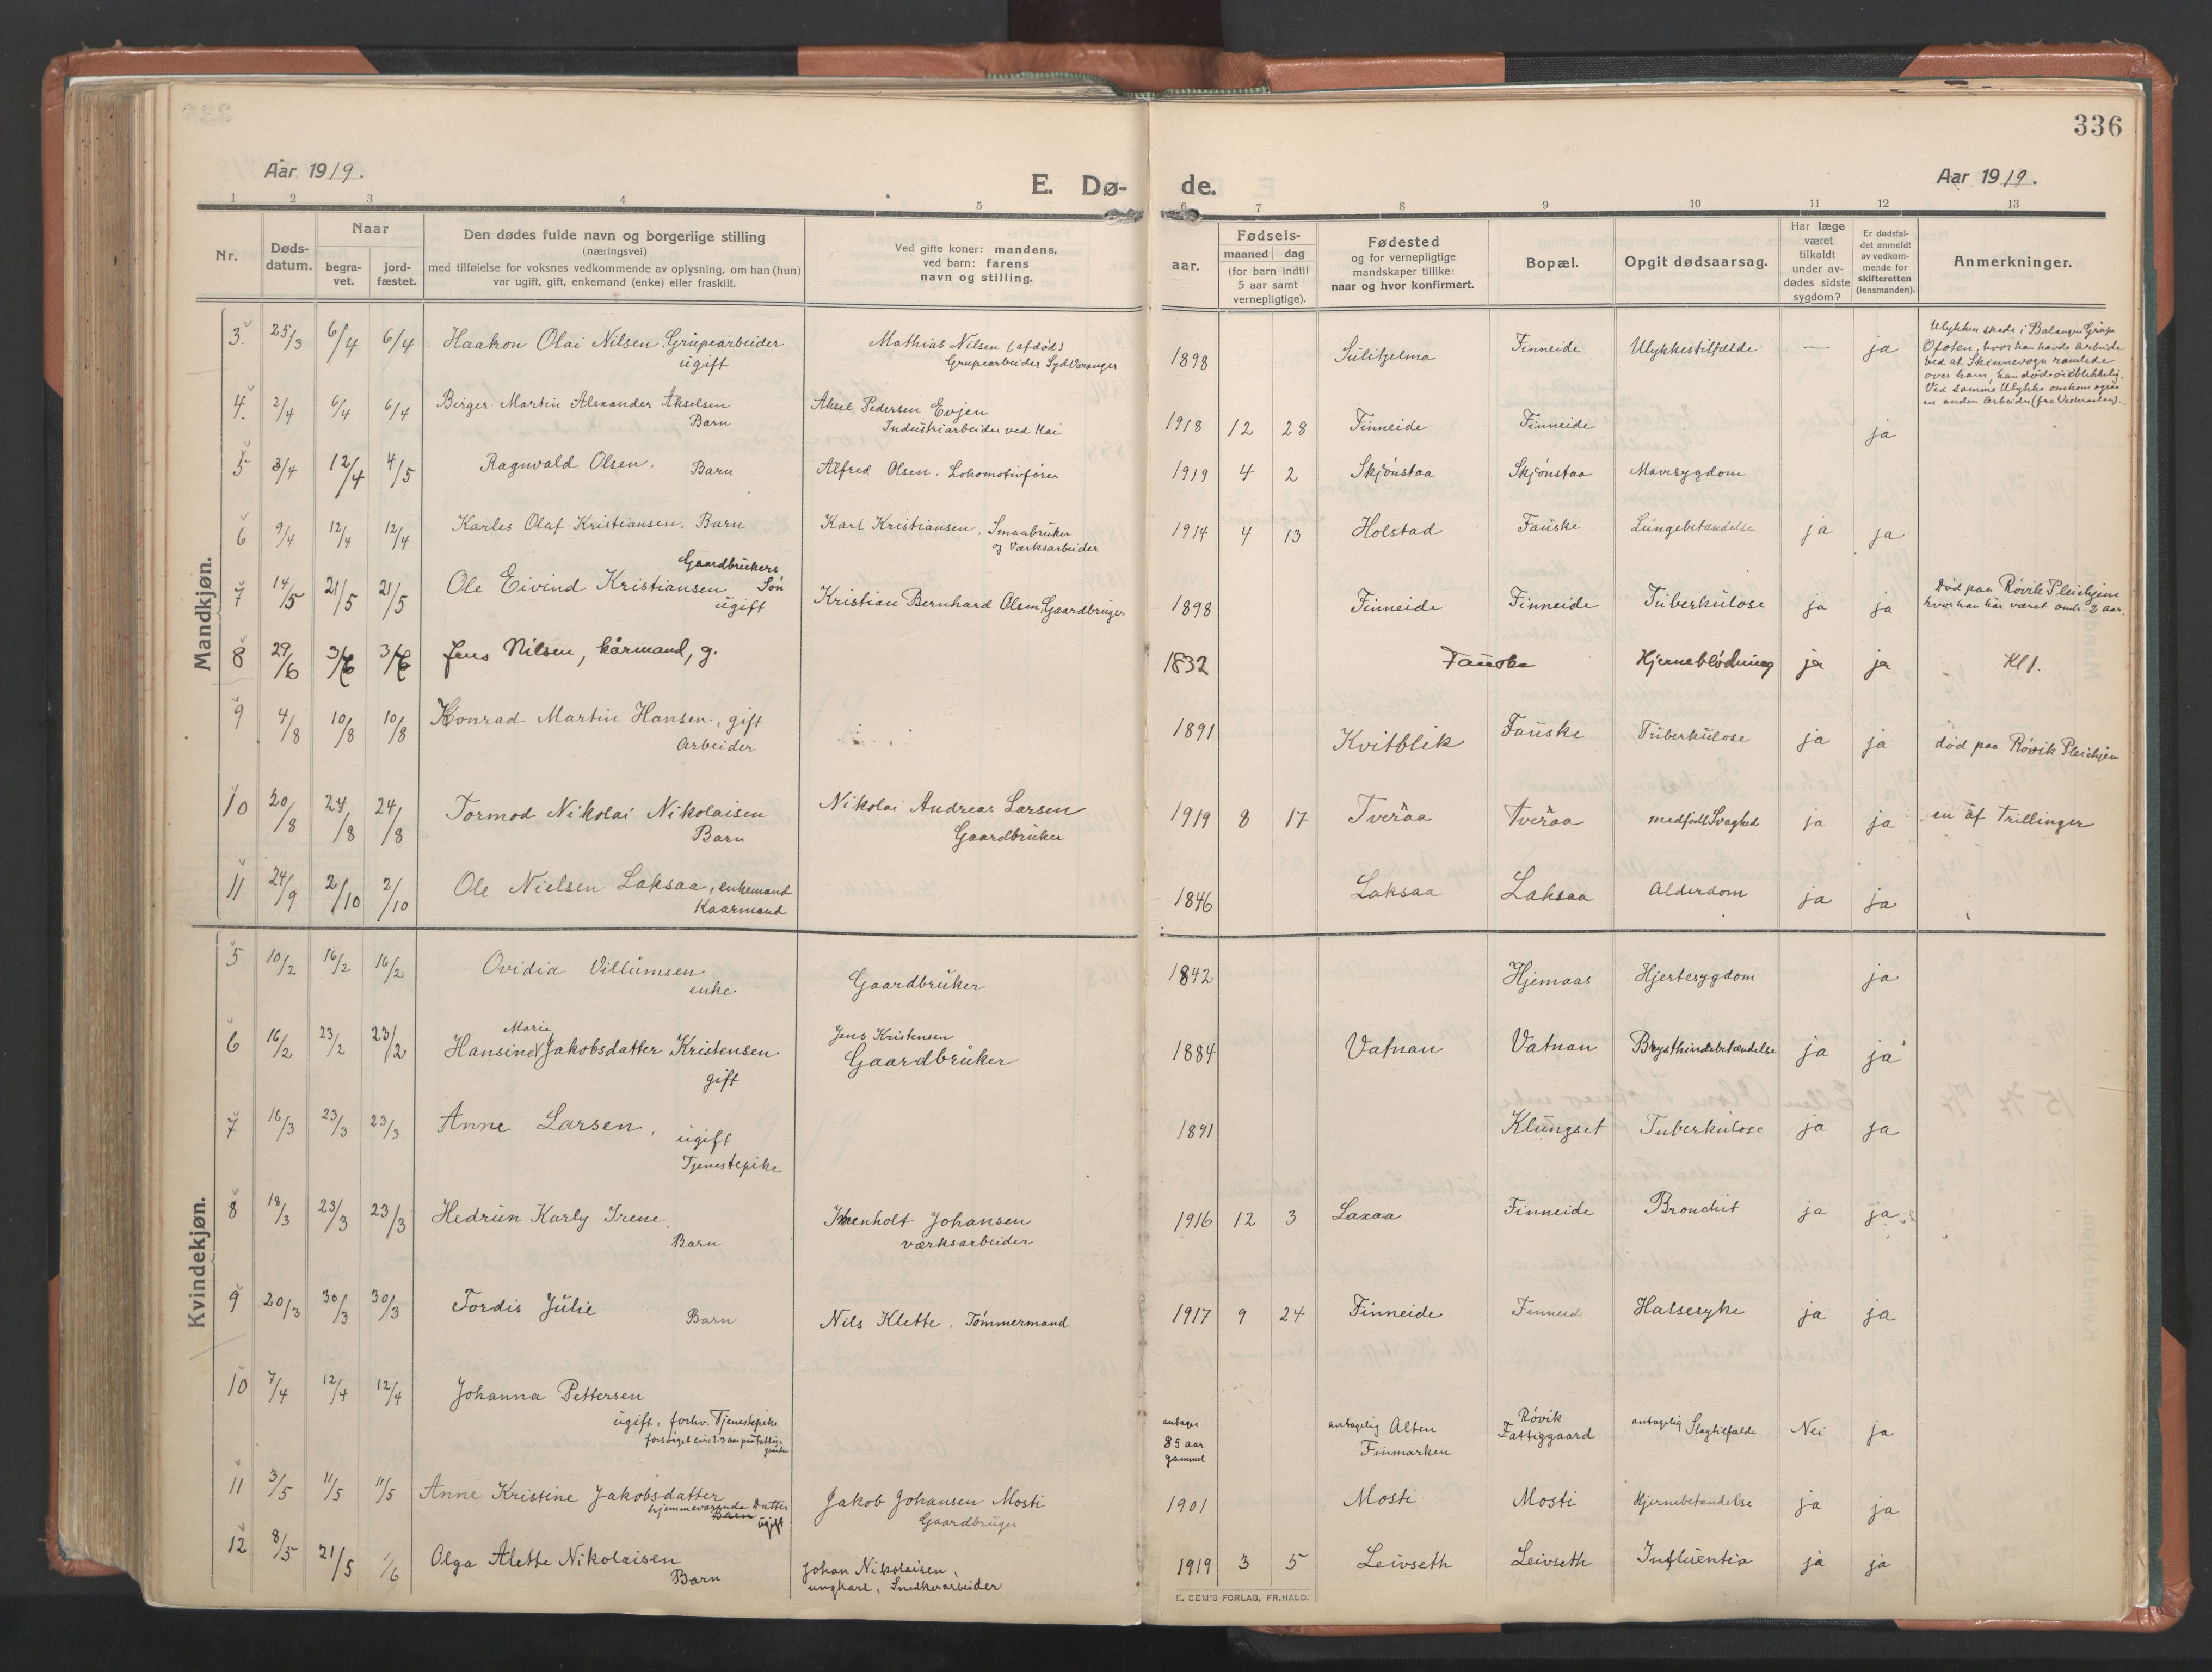 336
Aar 1919.
E. Dø-
de.
Aar 1919.
1 2 3 4 5 6 7 8 9 10 11 12 13
Nr.
Døds-
datum.
Naar
begra-
vet.
jord-
fæstet.
Den dødes fulde navn og borgerlige stilling
(næringsvei)
med tilføielse for voksnes vedkommende av oplysning, om han (hun)
var ugift, gift, enkemand (enke) eller fraskilt.
Ved gifte koner: mandens,
ved barn: farens
navn og stilling.
Fødsels-
aar.
maaned dag
(for barn indtil
5 aar samt
vernepligtige).
Fødested
og for vernepligtige
mandskaper tillike:
naar og hvor konfirmert.
Bopæl.
Opgit dødsaarsag.
Har læge
været
tilkaldt
under av-
dødes sidste
sygdom?
Er dødsfal-
det anmeldt
av vedkom-
mende for
skifteretten
(lensmanden).
Anmerkninger.
Mandkjøn.
3. 25/3 6/4 6/4 Haakon Olai Nilsen, Grubearbeider
ugift
Mathias Nilsen (afdød)
Grupearbeider SydVaranger
1898 Sulitjelma Finneide Ulykkestilfælde — ja
Ulykken skede i Balangen Grube
Ofoten, hvor han havde arbeide
ved at Skinnevogn ramlede
over ham, han døde øieblikkelig.
Ved samme Ulykke omkom ogsaa
en anden Arbeider (fra Vesteraalen).
4. 2/4 6/4 6/4 Birger Martin Alexander Akselsen
Barn
Aksel Pedersen Evjen
Industriarbeider ved Kai
1918 12 28 Finneide Finneide ja
5 3/4 12/4 4/5 Ragnvald Olsen. Barn
Alfred Olsen. Lokomotivfører
1919 4 2 Skjønstaa Skjønstaa Mavesygdom
6 9/4 12/4 12/4 Karles Olaf Kristiansen. Barn
Karl Kristiansen, Smaabruker
og Værksarbeider
1914 4 13 Holstad Fauske Lungebetændelse ja ja
7 14/5 21/5 21/5 Ole Eivind Kristiansen Gaardbrukers
Søn
ugift
Kristian Bernhard Olsen, Gaardbruger
1898 Finneide Finneide Tuberkulose ja ja
Død paa Røvik Pleiehjem
hvor han har været omtr. 2 aar.
8 29/6 3/7 3/7 Jens Nilsen, kårmand, g.
1832 Fauske Hjerneblødning ja ja Kl 1.
9 4/8 10/8 10/8 Konrad Martin Hansen, gift
Arbeider
1891 Kvitblik Fauske Tuberkulose ja ja død paa Røvik Pleiehjem
10 20/8 24/8 24/8 Tormod Nikolai Nikolaisen
Barn
Nikolai Andreas Larsen
Gaardbruker
1919 8 17 Tveraa Tveraa medfødt Svaghed ja ja en af Trillinger
11 24/9 2/10 2/10 Ole Nielsen Laksaa, enkemand
Kaarmand
1846 Laksaa Laksaa Alderdom ja ja
Kvindekjøn.
5 10/2 16/2 16/2 Ovidia Villumsen
enke
Gaardbruker
1842 Hjemaas Hjertesygdom ja
6 16/2 23/2 23/2 Hansine Marie Jakobsdatter Kristensen
gift
Jens Kristensen
Gaardbruker
1884 Vatnan Vatnan Brysthindebetændelse ja ja
7 16/3 23/3 23/3 Anne Larsen, ugift
Tjenestepike
1891 Klungset Tuberkulose ja ja
8 18/3 23/3 23/3 Hedrun Karly Irene
Barn
Johansen
værksarbeider
1916 12 3 Laxaa Finneide Bronchit ja ja
9 20/3 30/3 30/3 Tordis Julie
Barn
Nils Klette. Tømmermand
1917 9 24 Finneide Finneid Halsesyke ja ja
10 7/4 12/4 12/4 Johanna Pettersen
ugift, forhv. Tjenestepike
antages
85 aar
gammel
antagelig Alten
Finmarken
Røvik
Fattiggaard
antagelig Slagtilfælde Nei ja
11 3/5 11/5 11/5 Anne Kristine Jakobsdatter
hjemmeværende Datter
Barn ugift
Jakob Johansen Mosti
Gaardbruger
1901 Mosti Mosti Hjernebetændelse ja ja
12 8/5 21/5 1/6 Olga Alette Nikolaisen
Barn
Johan Nikolaisen,
ungkarl, Snedkerarbeider
1919 3 5 Leivseth Leivseth Influentia ja ja
E. SEM'S FORLAG, FR.HALD.